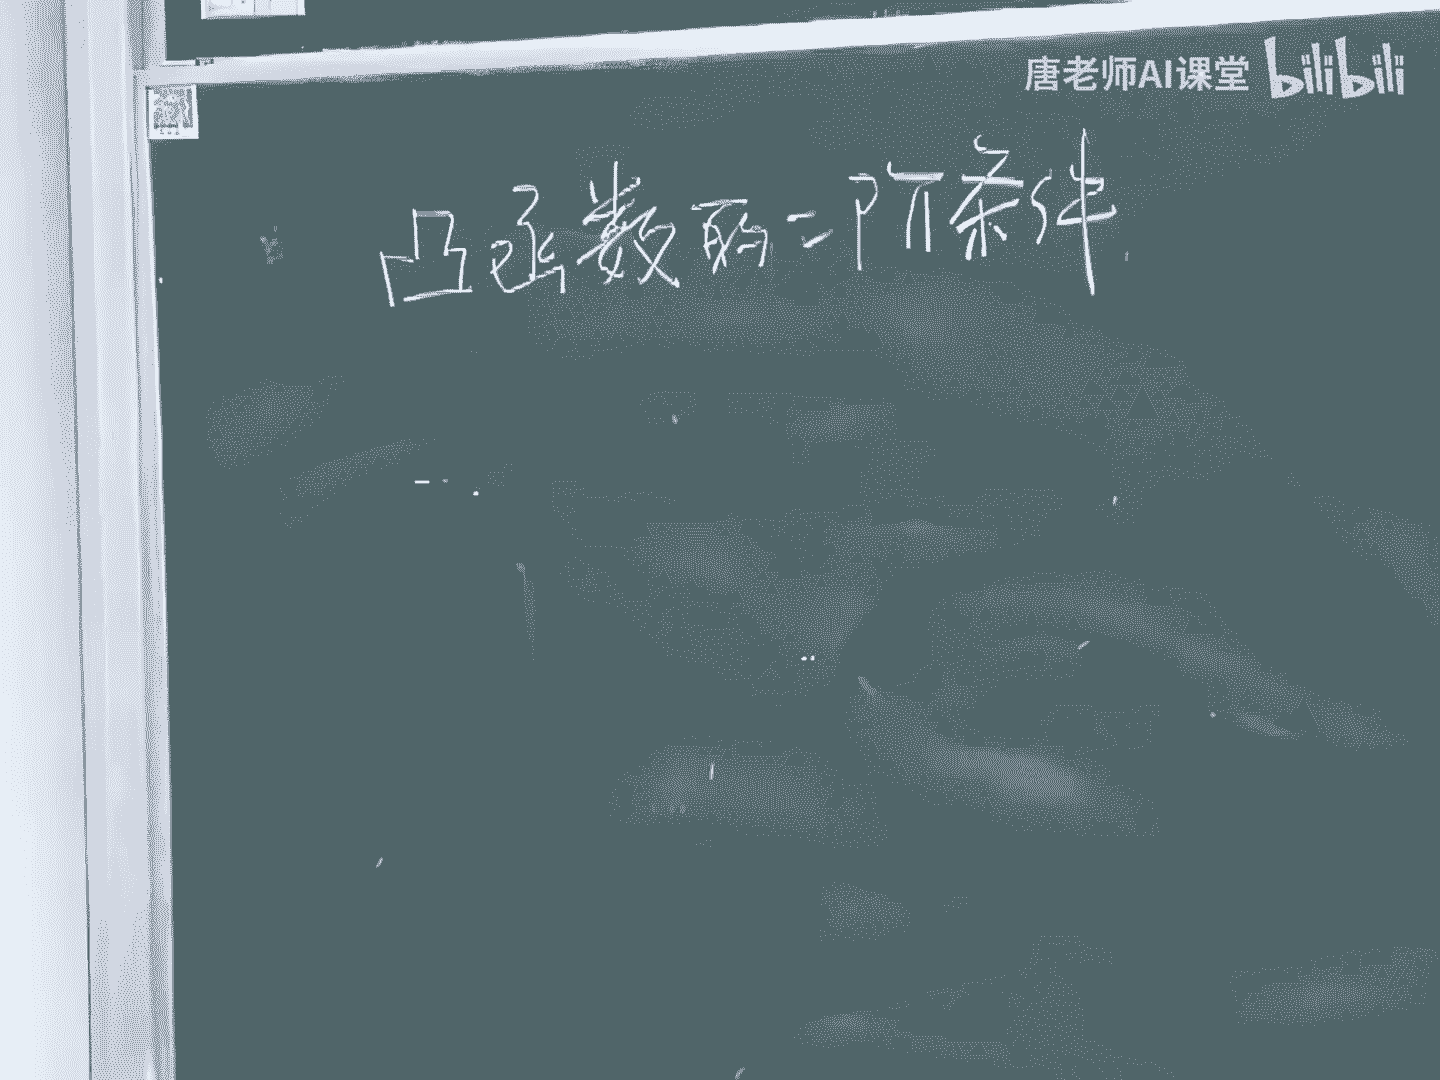 唐老师AI课堂 bilibili
凸函数的二阶条件